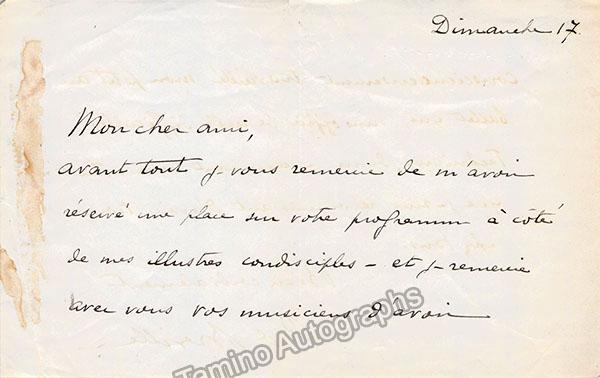 Dimanche 17.
Mon cher ami,
avant tout je vous remercie de m'avoir
réservé une place sur votre programme à côté
de mes illustres condisciples – et je remercie
avec vous vos musiciens d'avoir
Tamino Autographs